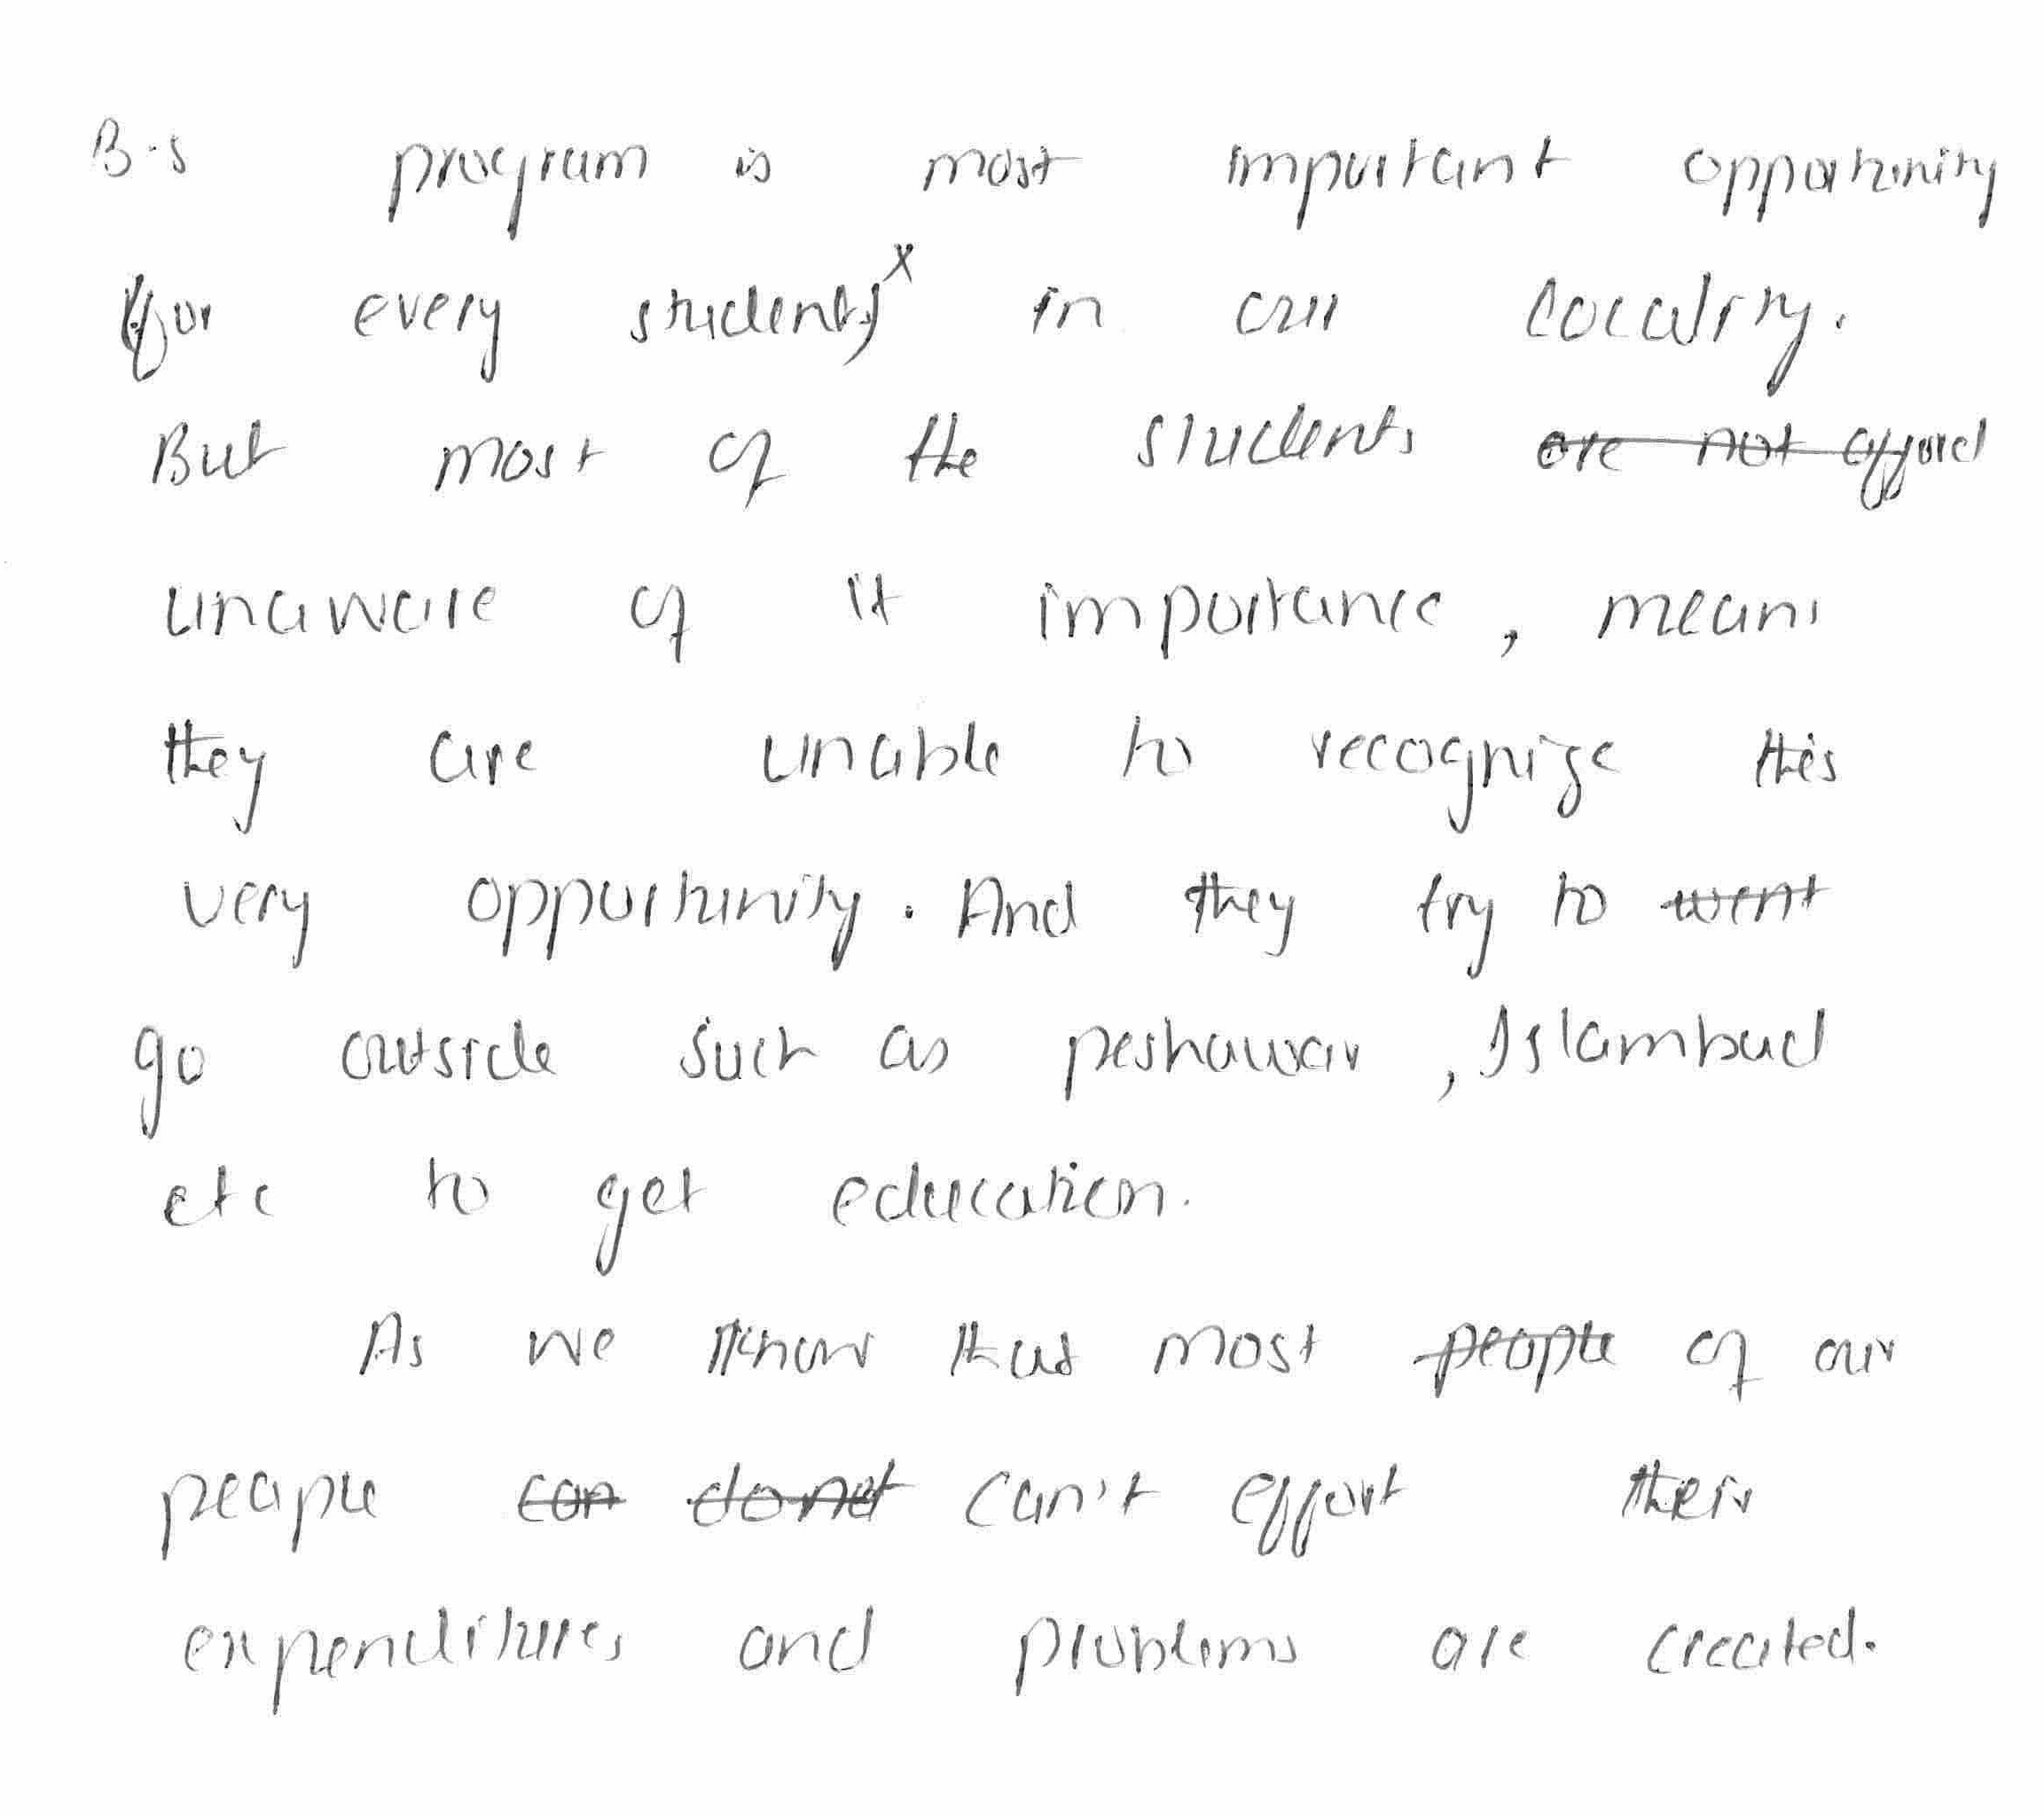 B.s program is most important opportunity
for every students x in our locality.
But most of the students ~~are not afford~~
unaware of it importance, means
they are unable to recognize this
very opportunity. And they try to ~~went~~
go outside such as peshawar, Islambad
etc to get education.
As we know that most ~~people~~ of our
people ~~can~~ ~~do not~~ can't effort their
expenditures and problems are created.